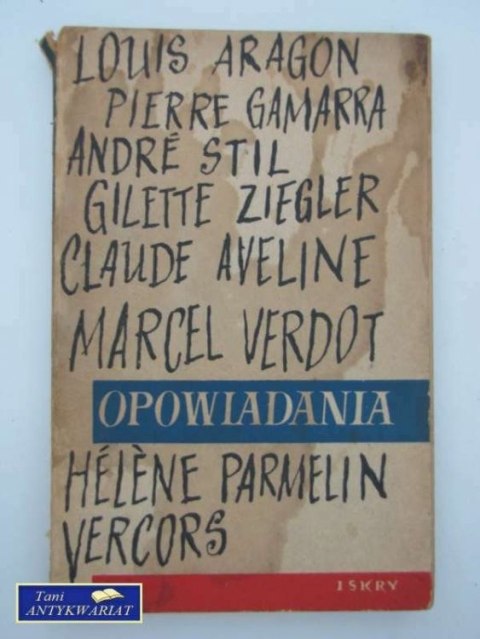 LOUIS ARAGON
PIERRE GAMARRA
ANDRÉ STIL
GILETTE ZIEGLER
CLAUDE AVELINE
MARCEL VERDOT
OPOWIADANIA
HÉLÈNE PARMELIN
VERCORS
ISKRY
Tani
ANTYKWARIAT